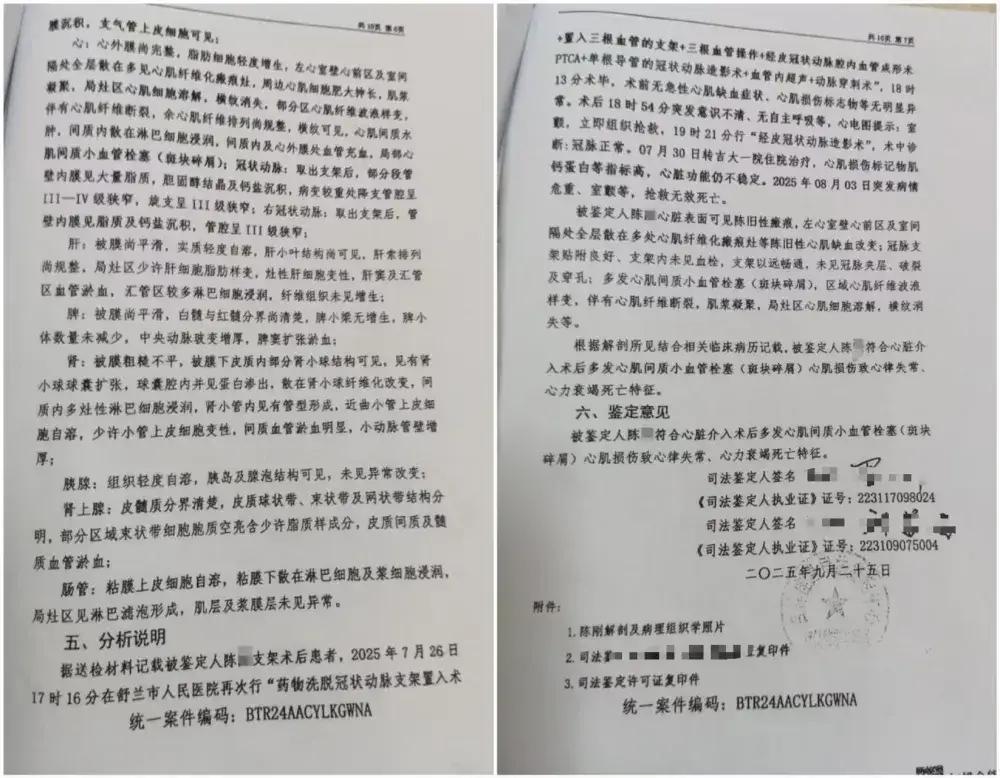 共10页 第6页
膜沉积，支气管上皮细胞可见；
心：心外膜尚完整，脂肪细胞轻度增生，左心室壁心前区及室间
隔处全层散在多见心肌纤维化瘢痕灶，周边心肌细胞肥大抻长，肌浆
凝聚，局灶区心肌细胞溶解，横纹消失，部分区心肌纤维波浪样变，
伴有心肌纤维断裂，余心肌纤维排列尚规整，横纹可见，心肌间质水
肿，间质内散在淋巴细胞浸润，间质内及心外膜处血管充血，局部心
肌间质小血管栓塞（斑块碎屑）；冠状动脉：取出支架后，部分段管
壁内膜见大量脂质，胆固醇结晶及钙盐沉积，病变较重处降支管腔呈
III—IV级狭窄，旋支呈III级狭窄；右冠状动脉：取出支架后，管
壁内膜见脂质及钙盐沉积，管腔呈III级狭窄；
肝：被膜尚平滑，实质轻度自溶，肝小叶结构尚可见，肝索排列
尚规整，局灶区少许肝细胞脂肪样变，灶性肝细胞变性，肝窦及汇管
区血管淤血，汇管区较多淋巴细胞浸润，纤维组织未见增生；
脾：被膜尚平滑，白髓与红髓分界尚清楚，脾小梁无增生，脾小
体数量未减少，中央动脉玻变增厚，脾窦扩张淤血；
肾：被膜粗糙不平，被膜下皮质内部分肾小球结构可见，见有肾
小球球囊扩张，球囊腔内并见蛋白渗出，散在肾小球纤维化改变，间
质内多灶性淋巴细胞浸润，肾小管内见有管型形成，近曲小管上皮细
胞自溶，少许小管上皮细胞变性，间质血管淤血明显，小动脉管壁增
厚；
胰腺：组织轻度自溶，胰岛及腺泡结构可见，未见异常改变；
肾上腺：皮髓质分界清楚，皮质球状带、束状带及网状带结构分
明，部分区域束状带细胞胞质空亮含少许脂质样成分，皮质间质及髓
质血管淤血；
肠管：粘膜上皮细胞自溶，粘膜下散在淋巴细胞及浆细胞浸润，
局灶区见淋巴滤泡形成，肌层及浆膜层未见异常。
五、分析说明
据送检材料记载被鉴定人陈 支架术后患者，2025年7月26日
17时16分在舒兰市人民医院再次行“药物洗脱冠状动脉支架置入术
统一案件编码：BTR24AACYLKGWNA
共10页 第7页
+置入三根血管的支架+三根血管操作+经皮冠状动脉腔内血管成形术
PTCA+单根导管的冠状动脉造影术+血管内超声+动脉穿刺术”，18时
13分术毕，术前无急性心肌缺血症状、心肌损伤标志物等无明显异
常。术后18时54分突发意识不清、无自主呼吸等，心电图提示：室
颤，立即组织抢救，19时21分行“经皮冠状动脉造影术”，术中诊
断：冠脉正常。07月30日转吉大一院住院治疗，心肌损伤标记物肌
钙蛋白等指标高，心脏功能仍不稳定。2025年08月03日突发病情
危重、室颤等，抢救无效死亡。
被鉴定人陈 心脏表面可见陈旧性瘢痕，左心室壁心前区及室间
隔处全层散在多处心肌纤维化瘢痕灶等陈旧性心肌缺血改变；冠脉支
架贴附良好、支架内未见血栓，支架以远畅通，未见冠脉夹层、破裂
及穿孔；多发心肌间质小血管栓塞（斑块碎屑），区域心肌纤维波液
样变，伴有心肌纤维断裂，肌浆凝聚，局灶区心肌细胞溶解，横纹消
失等。
根据解剖所见结合相关临床病历记载，被鉴定人陈 符合心脏介
入术后多发心肌间质小血管栓塞（斑块碎屑）心肌损伤致心律失常、
心力衰竭死亡特征。
六、鉴定意见
被鉴定人陈 符合心脏介入术后多发心肌间质小血管栓塞（斑块
碎屑）心肌损伤致心律失常、心力衰竭死亡特征。
司法鉴定人签名
《司法鉴定人执业证》证号：223117098024
司法鉴定人签名
《司法鉴定人执业证》证号：223109075004
二〇二五年九月二十五日
附件：
1. 陈刚解剖及病理组织学照片
2. 司法 复印件
3. 司法鉴定许可证复印件
统一案件编码：BTR24AACYLKGWNA